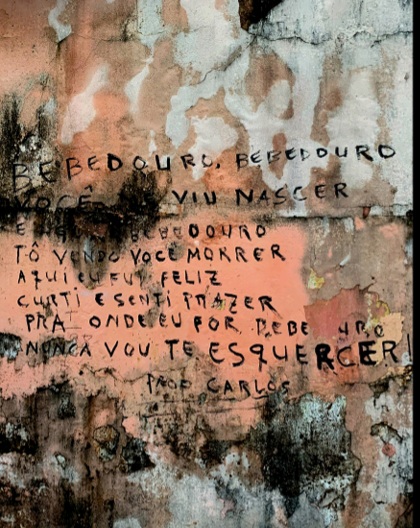 BEBEDOURO, BEBEDOURO
VOCÊ VIU NASCER
E BEBEDOURO
TÔ VENDO VOCÊ MORRER
AQUI EU FUI FELIZ
CURTI E SENTI PRAZER
PRA ONDE EU FOR, BEBE URO
NUNCA VOU TE ESQUERCER!
PROF CARLOS